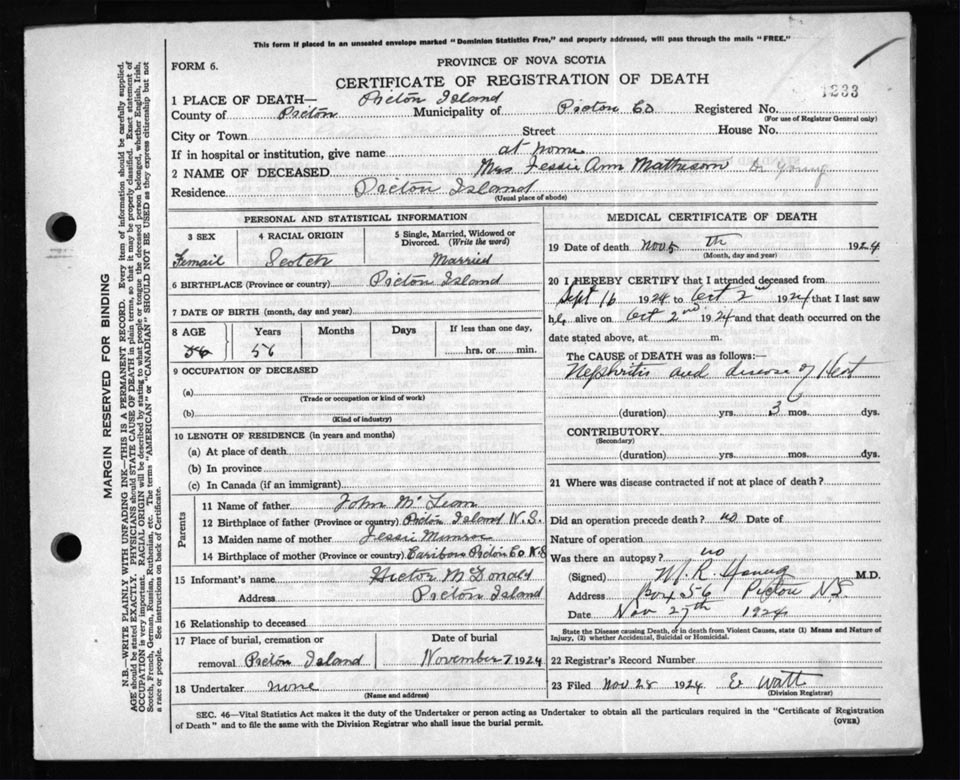 This form if placed in an unsealed envelope marked "Dominion Statistics Free," and properly addressed, will pass through the mails "FREE."
FORM 6.
PROVINCE OF NOVA SCOTIA
CERTIFICATE OF REGISTRATION OF DEATH
1233
1 PLACE OF DEATH— Pictou Island
County of Pictou Municipality of Pictou Co Registered No.
(For use of Registrar General only)
City or Town Street House No.
If in hospital or institution, give name at home
2 NAME OF DECEASED Mrs Jessie Ann Matheson Dr Young
Residence Pictou Island
(Usual place of abode)
PERSONAL AND STATISTICAL INFORMATION
3 SEX 4 RACIAL ORIGIN 5 Single, Married, Widowed or Divorced. (Write the word)
Femail Scotch Married
6 BIRTHPLACE (Province or country) Pictou Island
7 DATE OF BIRTH (month, day and year)
8 AGE Years Months Days If less than one day,
56 56 hrs. or min.
9 OCCUPATION OF DECEASED
(a)
(Trade or occupation or kind of work)
(b)
(Kind of industry)
10 LENGTH OF RESIDENCE (in years and months)
(a) At place of death
(b) In province
(c) In Canada (if an immigrant)
Parents
11 Name of father John McLean
12 Birthplace of father (Province or country) Pictou Island N.S.
13 Maiden name of mother Jessie Munroe
14 Birthplace of mother (Province or country) Caribou Pictou Co N.S
15 Informant's name Hector McDonald
Address Pictou Island
16 Relationship to deceased
17 Place of burial, cremation or Date of burial
removal Pictou Island November 7 1924
18 Undertaker none
(Name and address)
MEDICAL CERTIFICATE OF DEATH
19 Date of death Nov 5 th 1924
(Month, day and year)
20 I HEREBY CERTIFY that I attended deceased from
Sept 16 1924 to Oct 2nd 1924 that I last saw
h alive on Oct 2nd 1924 and that death occurred on the
date stated above, at m.
The CAUSE OF DEATH was as follows:—
Nephritis and disease of Heart
(duration) yrs. 3 mos. dys.
CONTRIBUTORY
(Secondary)
(duration) yrs. mos. dys.
21 Where was disease contracted if not at place of death?
Did an operation precede death? no Date of
Nature of operation
Was there an autopsy? no
(Signed) M.R. Young M.D.
Address Box 56 Pictou NS
Date Nov 27th 1924
State the Disease causing Death, or in death from Violent Causes, state (1) Means and Nature of Injury, (2) whether Accidental, Suicidal or Homicidal.
22 Registrar's Record Number
23 Filed Nov 28 1924 E Watt
(Division Registrar)
SEC. 46—Vital Statistics Act makes it the duty of the Undertaker or person acting as Undertaker to obtain all the particulars required in the "Certificate of Registration
of Death" and to file the same with the Division Registrar who shall issue the burial permit.
(OVER)
MARGIN RESERVED FOR BINDING
N.B.—WRITE PLAINLY WITH UNFADING INK—THIS IS A PERMANENT RECORD. Every item of information should be carefully supplied.
AGE should be stated EXACTLY. PHYSICIANS should STATE CAUSE OF DEATH in plain terms, so that it may be properly classified. Exact statement of
OCCUPATION is very important. RACIAL ORIGIN will be described by stating to what people or tongue the deceased person belonged, whether English, Irish,
Scotch, French, German, Russian, Ruthenian, etc. The terms "AMERICAN" or "CANADIAN" SHOULD NOT BE USED as they express citizenship but not
a race or people. See instructions on back of Certificate.